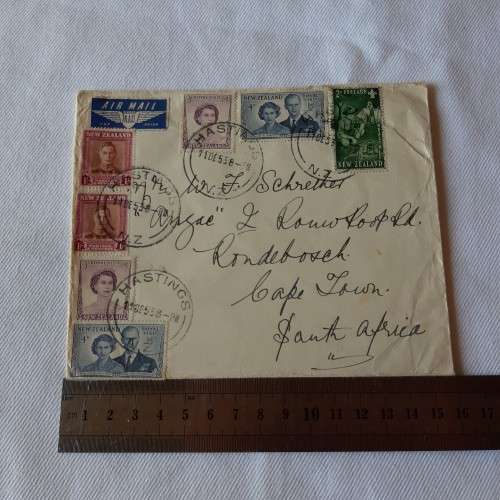 AIR MAIL
NEW ZEALAND
NEW ZEALAND
NEW ZEALAND
HASTINGS
N.Z.
HASTINGS
N.Z
HASTINGS
NEW ZEALAND
NEW ZEALAND
W. F. Schrether
"Anzac" 2 Rouwkoop Rd.
Rondebosch.
Cape Town.
South Africa
cm 1 2 3 4 5 6 7 8 9 10 11 12 13 14 15 16 17